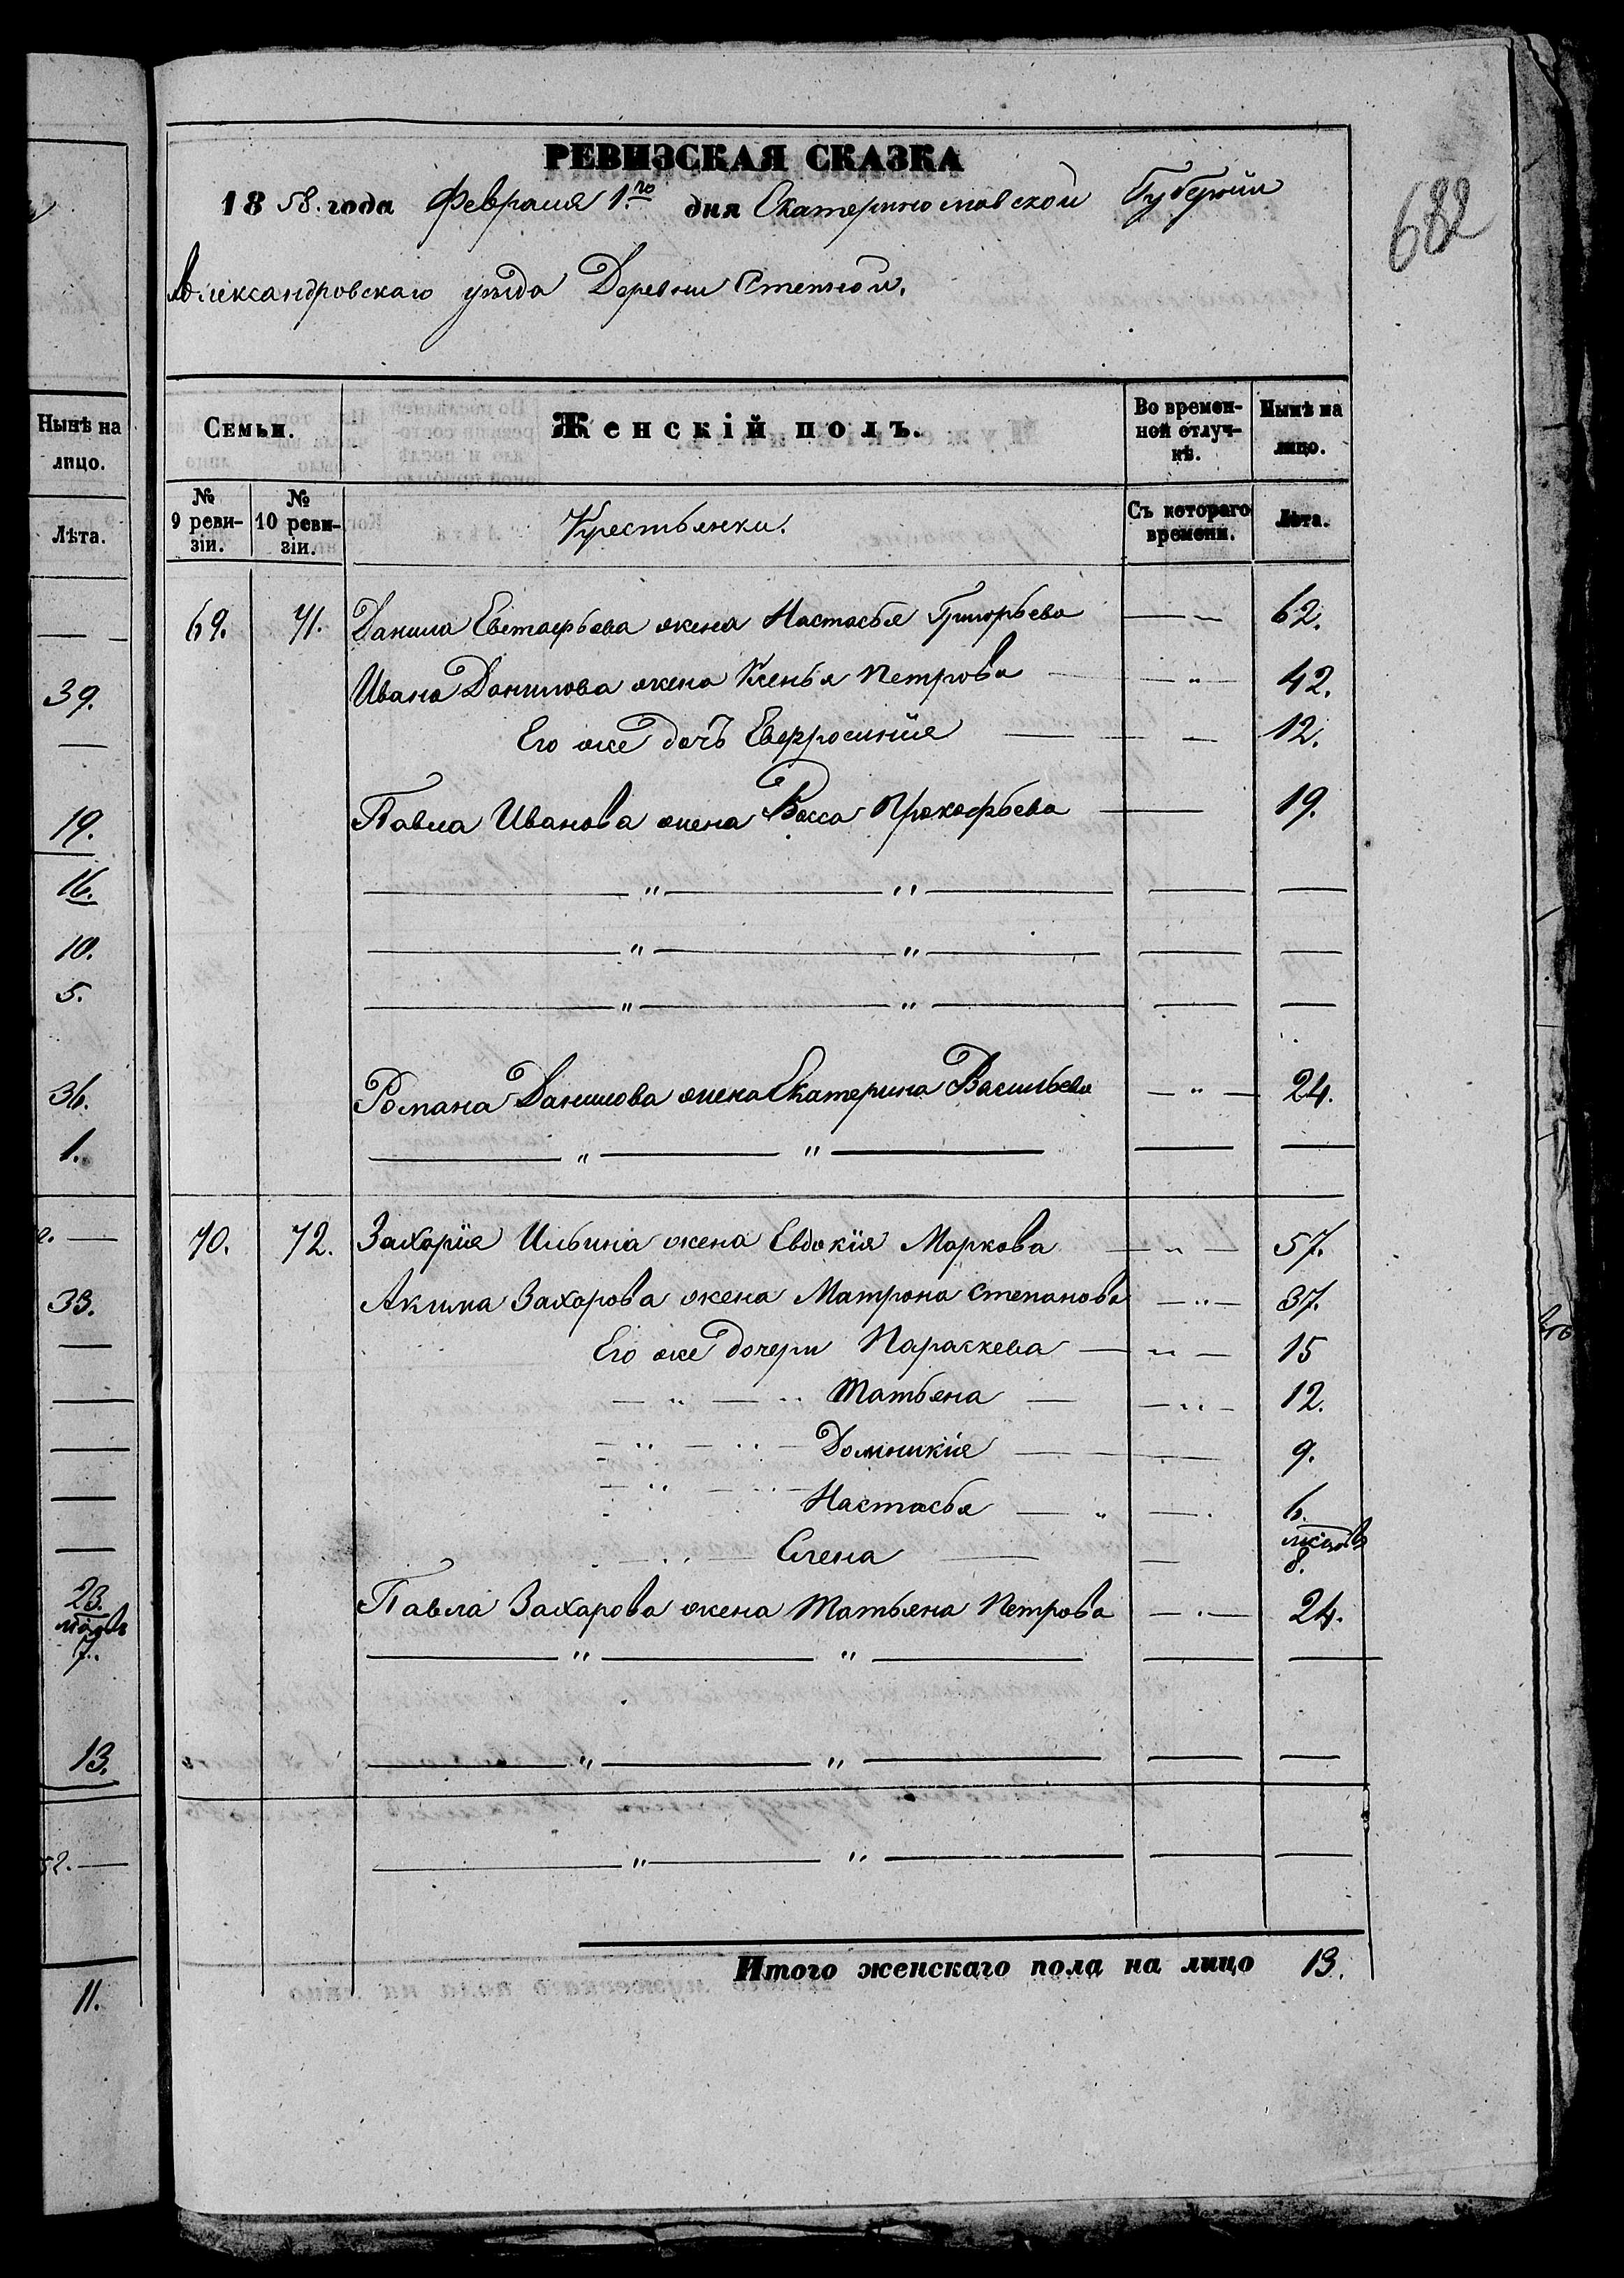 РЕВИЗСКАЯ СКАЗКА
1858. года Февраля 1.го дня Екатеринославской Губернии
682
Александровскаго уѣзда Деревни Степной.
Нынѣ на лицо.
Лѣта.
39.
19.
16.
10.
5.
36.
1.
33.
23.
7.
13.
11.
Семьи.
Женскій полъ.
Во времен-
ной отлуч-
кѣ.
Нынѣ на
лицо.
№
9 реви-
зіи.
№
10 реви-
зіи.
Крестьянки.
Съ котораго
времени.
Лѣта.
69. 71. Данила Евстафьева жена Настасья Григорьева — „ — 62.
Ивана Данилова жена Ксенья Петрова — „ — 42.
Его же дочь Евфросинія — — 12.
Павла Иванова жена Васса Прокофьева — 19.
— „ — „ — — —
— „ — „ — — —
— „ — „ — — —
Романа Данилова жена Екатерина Васильева — „ — 24.
— „ — „ — — —
70. 72. Захарія Ильина жена Евдокія Маркова — „ — 57.
Акима Захарова жена Матрона Степанова — „ — 37.
Его же дочери Параскева — „ — 15
— „ — „ Татьяна — — „ — 12.
— „ — „ — Домникія — — 9.
— „ — „ — Настасья — „ — 6.
— „ — Елена — — мѣсяцовъ
8.
Павла Захарова жена Татьяна Петрова — „ — 24.
— „ — „ — — —
— „ — „ — — —
— „ — „ — — —
Итого женскаго пола на лицо 13.